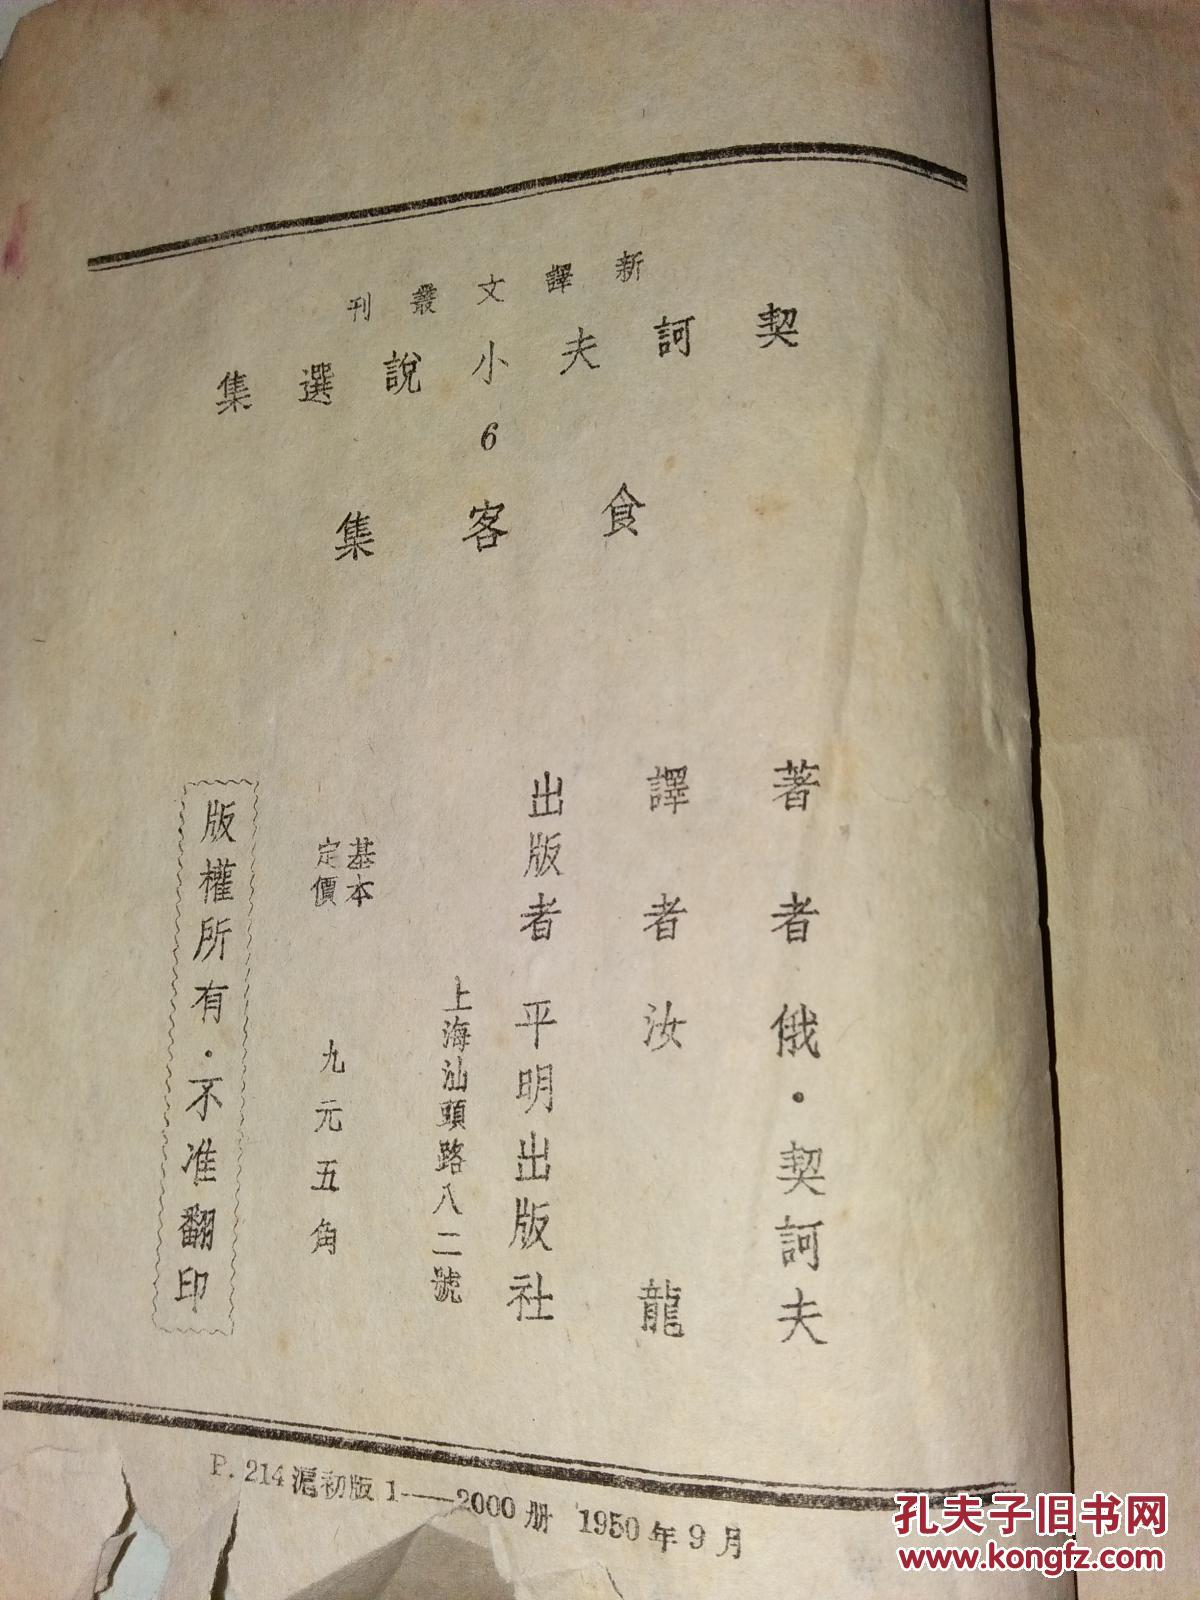 新譯文叢刊
契訶夫小說選集
6
食客集
著者 俄·契訶夫
譯者 汝龍
出版者 平明出版社
上海汕頭路八二號
基本定價 九元五角
版權所有·不准翻印
P. 214 滬初版 1——2000 册 1950 年 9 月
孔夫子旧书网
www.kongfz.com